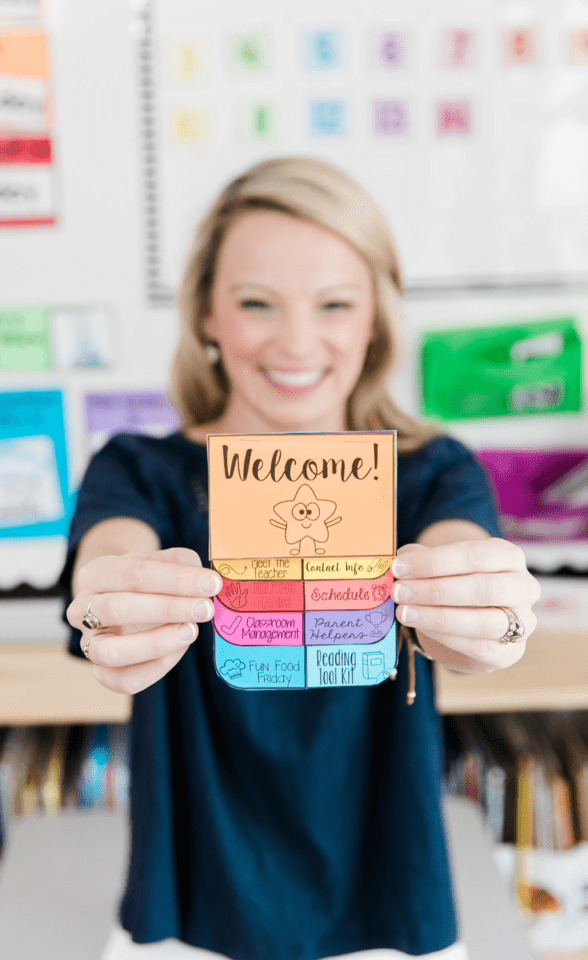 Welcome!
Meet the Teacher
Contact Info
Schedule
Classroom Management
Parent Helpers
Fun Food Friday
Reading Tool Kit
5
6
7
8